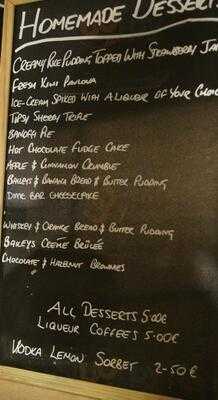 HOMEMADE DESSERT
CREAMY RICE PUDDING TOPPED WITH STRAWBERRY JA
FRESH KIWI PAVLOVA
ICE-CREAM SPIKED WITH A LIQUEUR OF YOUR CHOI
TIPSY SHERRY TRIFLE
BANOFFI PIE
HOT CHOCOLATE FUDGE CAKE
APPLE & CINNAMON CRUMBLE
BAILEYS & BANANA BREAD & BUTTER PUDDING
DIME BAR CHEESECAKE
WHISKEY & ORANGE BREAD & BUTTER PUDDING
BAILEYS CREME BRÛLÉE
CHOCOLATE & HAZELNUT BROWNIES
ALL DESSERTS 5.00€
LIQUEUR COFFEES 5.00€
VODKA LEMON SORBET 2-50€